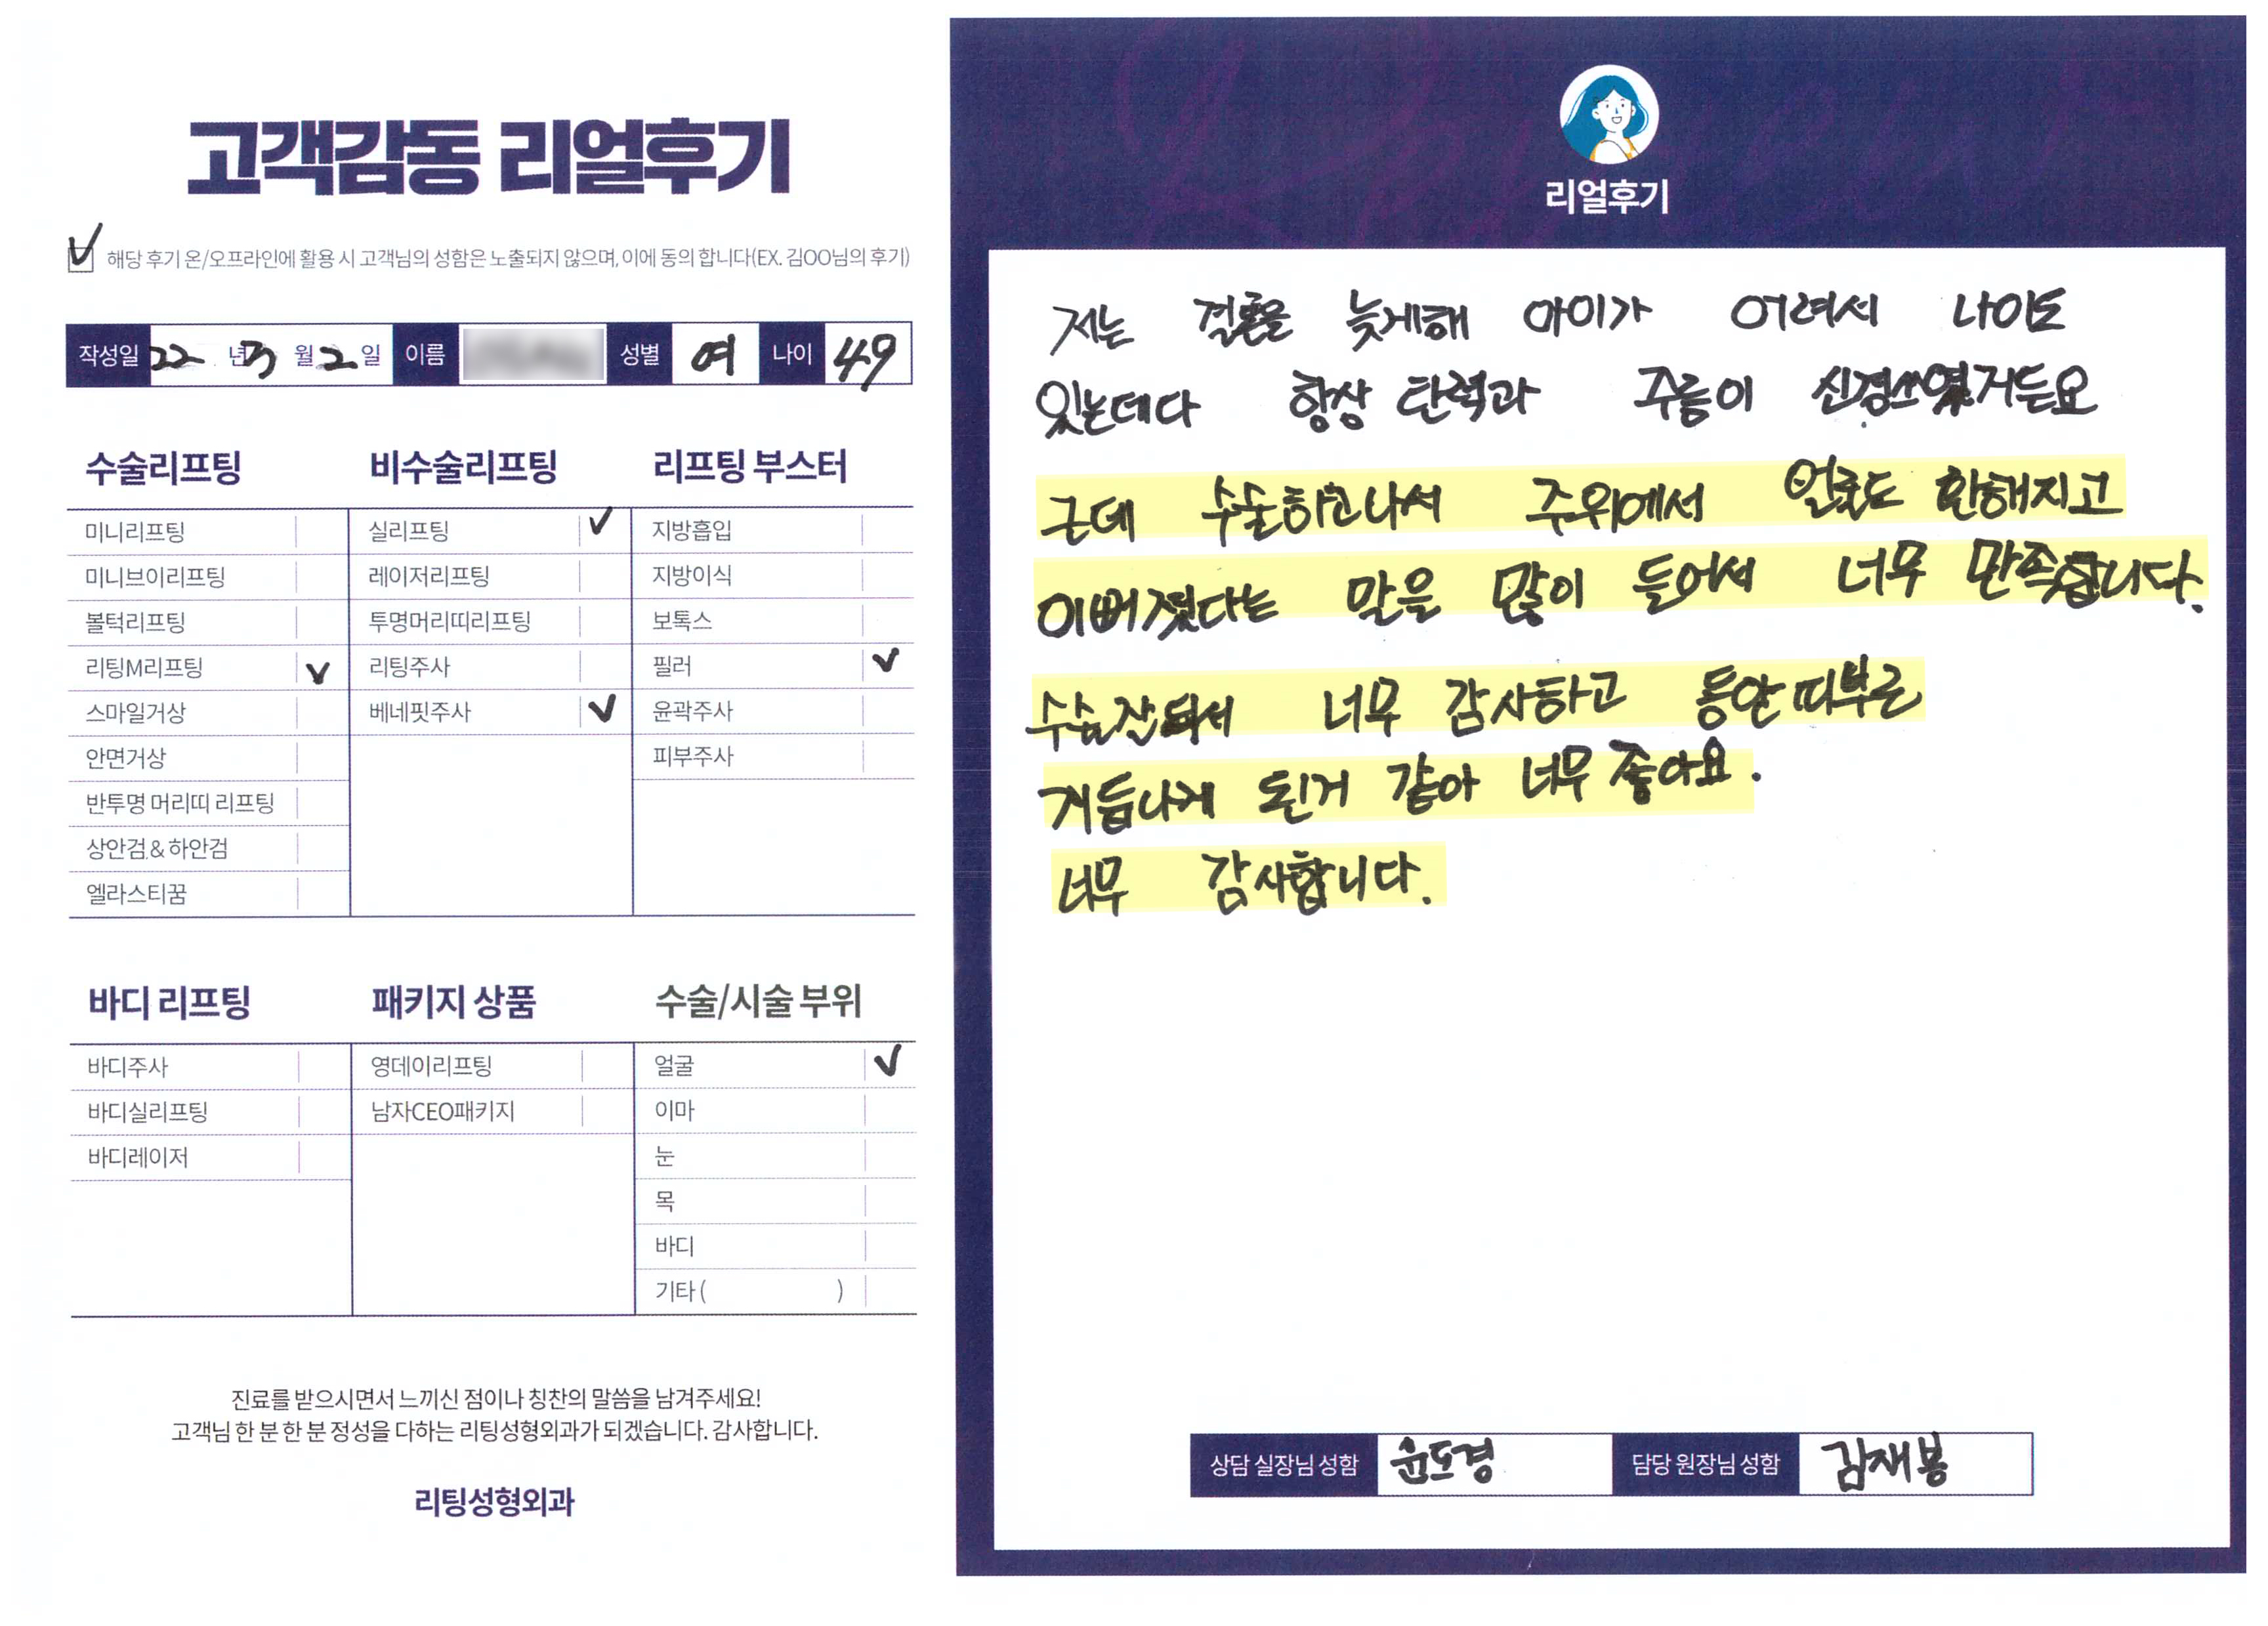 고객감동 리얼후기
해당 후기 온/오프라인에 활용 시 고객님의 성함은 노출되지 않으며, 이에 동의 합니다(EX. 김OO님의 후기)
작성일 22 년 3 월 2 일 이름 성별 여 나이 49
수술리프팅
미니리프팅
미니브이리프팅
볼턱리프팅
리팅M리프팅 ✓
스마일거상
안면거상
반투명 머리띠 리프팅
상안검 & 하안검
엘라스티꿈
비수술리프팅
실리프팅 ✓
레이저리프팅
투명머리띠리프팅
리팅주사
베네핏주사 ✓
리프팅 부스터
지방흡입
지방이식
보톡스
필러 ✓
윤곽주사
피부주사
바디 리프팅
바디주사
바디실리프팅
바디레이저
패키지 상품
영데이리프팅
남자CEO패키지
수술/시술 부위
얼굴 ✓
이마
눈
목
바디
기타 ( )
진료를 받으시면서 느끼신 점이나 칭찬의 말씀을 남겨주세요!
고객님 한 분 한 분 정성을 다하는 리팅성형외과가 되겠습니다. 감사합니다.
리팅성형외과
리얼후기
저는 결혼을 늦게해 아이가 어려서 나이도
있는데다 항상 탄력과 주름이 신경쓰였거든요
근데 수술하고나서 주위에서 얼굴도 환해지고
이뻐졌다는 말을 많이 들어서 너무 만족합니다.
수술잘되서 너무 감사하고 동안피부로
거듭나게 된거 같아 너무 좋아요.
너무 감사합니다.
상담 실장님 성함 윤도경 담당 원장님 성함 김재봉